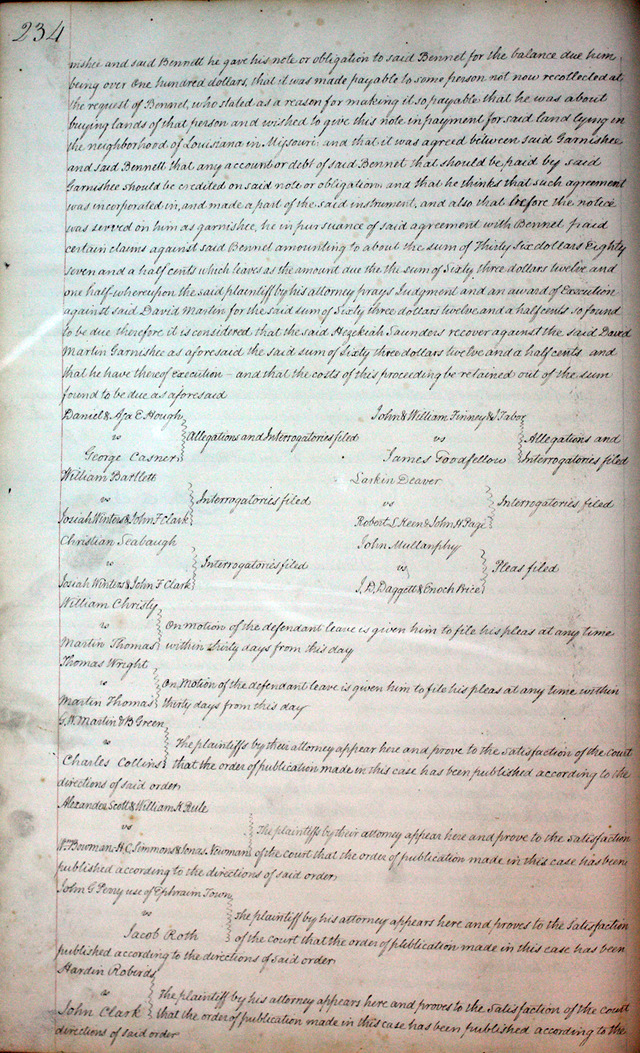 234
nishee and said Bennett he gave his note or obligation to said Bennet for the balance due him,
being over One hundred dollars, that it was made payable to some person not now recollected at
the request of Bennet, who stated as a reason for making it so payable that he was about
buying lands of that person and wished to give this note in payment for said land lying in
the neighborhood of Louisiana in Missouri, and that it was agreed between said Garnishee
and said Bennett that any account or debt of said Bennet that should be paid by said
Garnishee should be credited on said note or obligation, and that he thinks that such agreement
was incorporated in, and made a part of the said instrument, and also that before the notice
was served on him as garnishee, he in pursuance of said agreement with Bennet paid
certain claims against said Bennet amounting to about the sum of Thirty Six dollars Eighty
seven and a half cents which leaves as the amount due the the sum of Sixty three dollars twelve and
one half whereupon the said plaintiff by his attorney prays Judgment and an award of Execution
against said David Martin for the said sum of Sixty three dollars twelve and a half cents so found
to be due therefore it is considered that the said Hezekiah Saunders recover against the said David
Martin Garnishee as aforesaid the said sum of Sixty three dollars twelve and a half cents and
that he have thereof execution - and that the costs of this proceeding be retained out of the sum
found to be due as aforesaid
Daniel & Asa E Hough
vs
George Casner
Allegations and Interrogatories filed
John & William Finney & J Tabor
vs
James Goodfellow
Allegations and
Interrogatories filed
William Bartlett
vs
Josiah Winters & John F Clark
Interrogatories filed
Larkin Deaver
vs
Robert L Kein & John H Page
Interrogatories filed
Christian Seabaugh
vs
Josiah Winters & John F Clark
Interrogatories filed
John Mullanphy
vs
J. D. Daggett & Enoch Price
Pleas filed
William Christy
vs
Martin Thomas
On motion of the defendant leave is given him to file his pleas at any time
within thirty days from this day
Thomas Wright
vs
Martin Thomas
On Motion of the defendant leave is given him to file his pleas at any time within
thirty days from this day
G. W. Martin & B Green
vs
Charles Collins
The plaintiffs by their attorney appear here and prove to the satisfaction of the Court
that the order of publication made in this case has been published according to the
directions of said order
Alexander Scott & William K Rule
vs
Wm Bowman H. C. Simmons & Jonas Newman
The plaintiffs by their attorney appear here and prove to the Satisfaction
of the court that the order of publication made in this case has been
published according to the directions of said order
John G Perry use of Ephraim Town
vs
Jacob Roth
The plaintiff by his attorney appears here and proves to the Satisfaction
of the court that the order of publication made in this case has been
published according to the directions of said order
Hardin Roberds
vs
John Clark
The plaintiff by his attorney appears here and proves to the Satisfaction of the court
that the order of publication made in this case has been published according to the
directions of said order